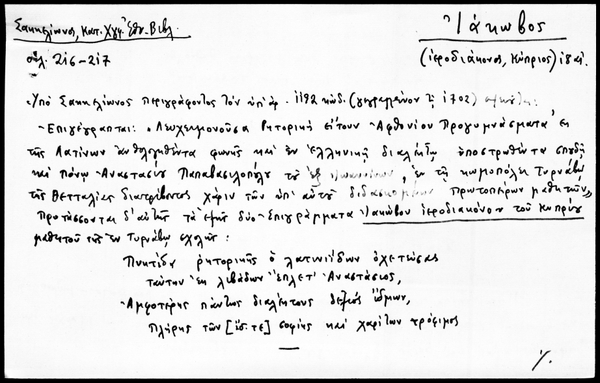 Σακκελίωνος, Κατ. Χγφ. Ἐθν. Βιβλ.
Ἰάκωβος
σελ. 216-217
(ἱεροδιάκονος, Κύπριος) 18 αἰ.
Ὑπὸ Σακκελίωνος περιγράφοντος τὸν ὑπ' ἀρ. 1192 κώδ. (γεγραμμένον τῷ 1702)
Ἐπιγέγραπται: "Λευχειμονοῦσα Ῥητορικὴ εἴτουν Ἀφθονίου Προγυμνάσματα ἐκ
τῆς Λατίνων ἀνθολογηθέντα φωνῆς καὶ ἐν ἑλληνικῇ διαλέκτῳ σπουδῇ
καὶ πόνῳ Ἀναστασίου Παπαβασιλοπούλου τοῦ ἐξ Ἰωαννίνων, ἐν τῇ κωμοπόλει Τυρνάβῳ
τῆς Θετταλίας διατρίβοντος χάριν τῶν ὑπ' αὐτοῦ διδασκομένων πρωτοπείρων μαθητῶν"
Προτάσσονται δ' αὐτῆς τὰ ἑξῆς δύο ἐπιγράμματα Ἰακώβου ἱεροδιακόνου τοῦ Κυπρίου
μαθητοῦ τῆς ἐν Τυρνάβῳ σχολῆς:
ῥητορικῆς ὁ λατινιίδων ὀχετεύσας
ταύτην ἐκ λιβάδων ἔπλετ' Ἀναστάσιος,
Ἀμφοτέρης πάντως διαλέκτους ἴδμων,
Πλήρης τῶν [ἐσ. τε] σοφίης καὶ χαρίτων τρόφιμος
./.